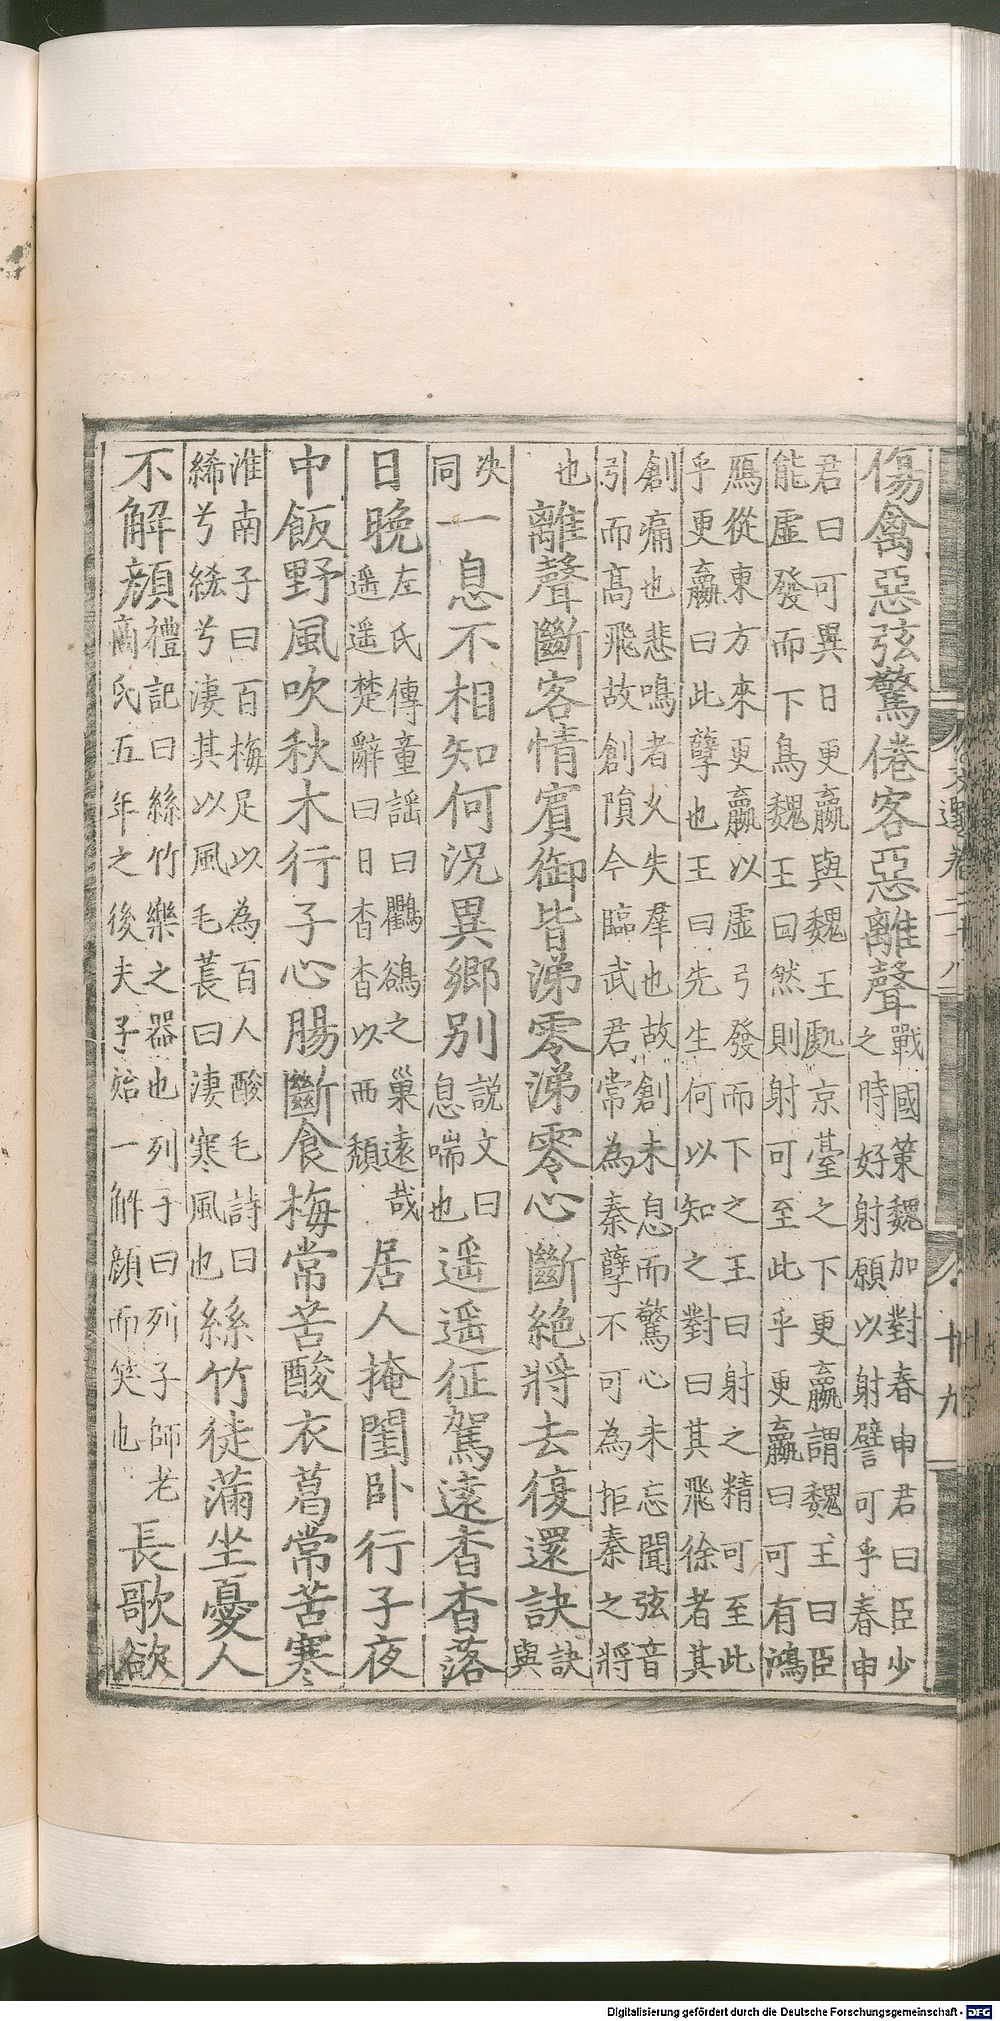 文選卷二十八 十九
傷禽惡弦驚倦客惡離聲戰國策魏加對春申君曰臣少
之時好射願以射譬可乎春申
君曰可異日更羸與魏王處京臺之下更羸謂魏王曰臣
能虛發而下鳥魏王曰然則射可至此乎更羸曰可有鴻
鴈從東方來更羸以虛弓發而下之王曰射之精可至此
乎更羸曰此孽也王曰先生何以知之對曰其飛徐者其
創痛也悲鳴者久失羣也故創未息而驚心未忘聞弦音
引而高飛故創隕今臨武君常為秦孽不可為拒秦之將
也離聲斷客情賓御皆涕零涕零心斷絕將去復還訣訣
與
决
同一息不相知何況異鄉别說文曰
息喘也遥遥征駕遠杳杳落
日晚左氏傳童謡曰鸜鵒之巢遠哉
遥遥楚辭曰日杳杳以西頹居人掩閨卧行子夜
中飯野風吹秋木行子心腸斷食梅常苦酸衣葛常苦寒
淮南子曰百梅足以為百人酸毛詩曰
絺兮綌兮淒其以風毛萇曰淒寒風也絲竹徒滿坐憂人
不解顏禮記曰絲竹樂之器也列子曰列子師老
商氏五年之後夫子始一解顏而笑也長歌欲
Digitalisierung gefördert durch die Deutsche Forschungsgemeinschaft - DFG